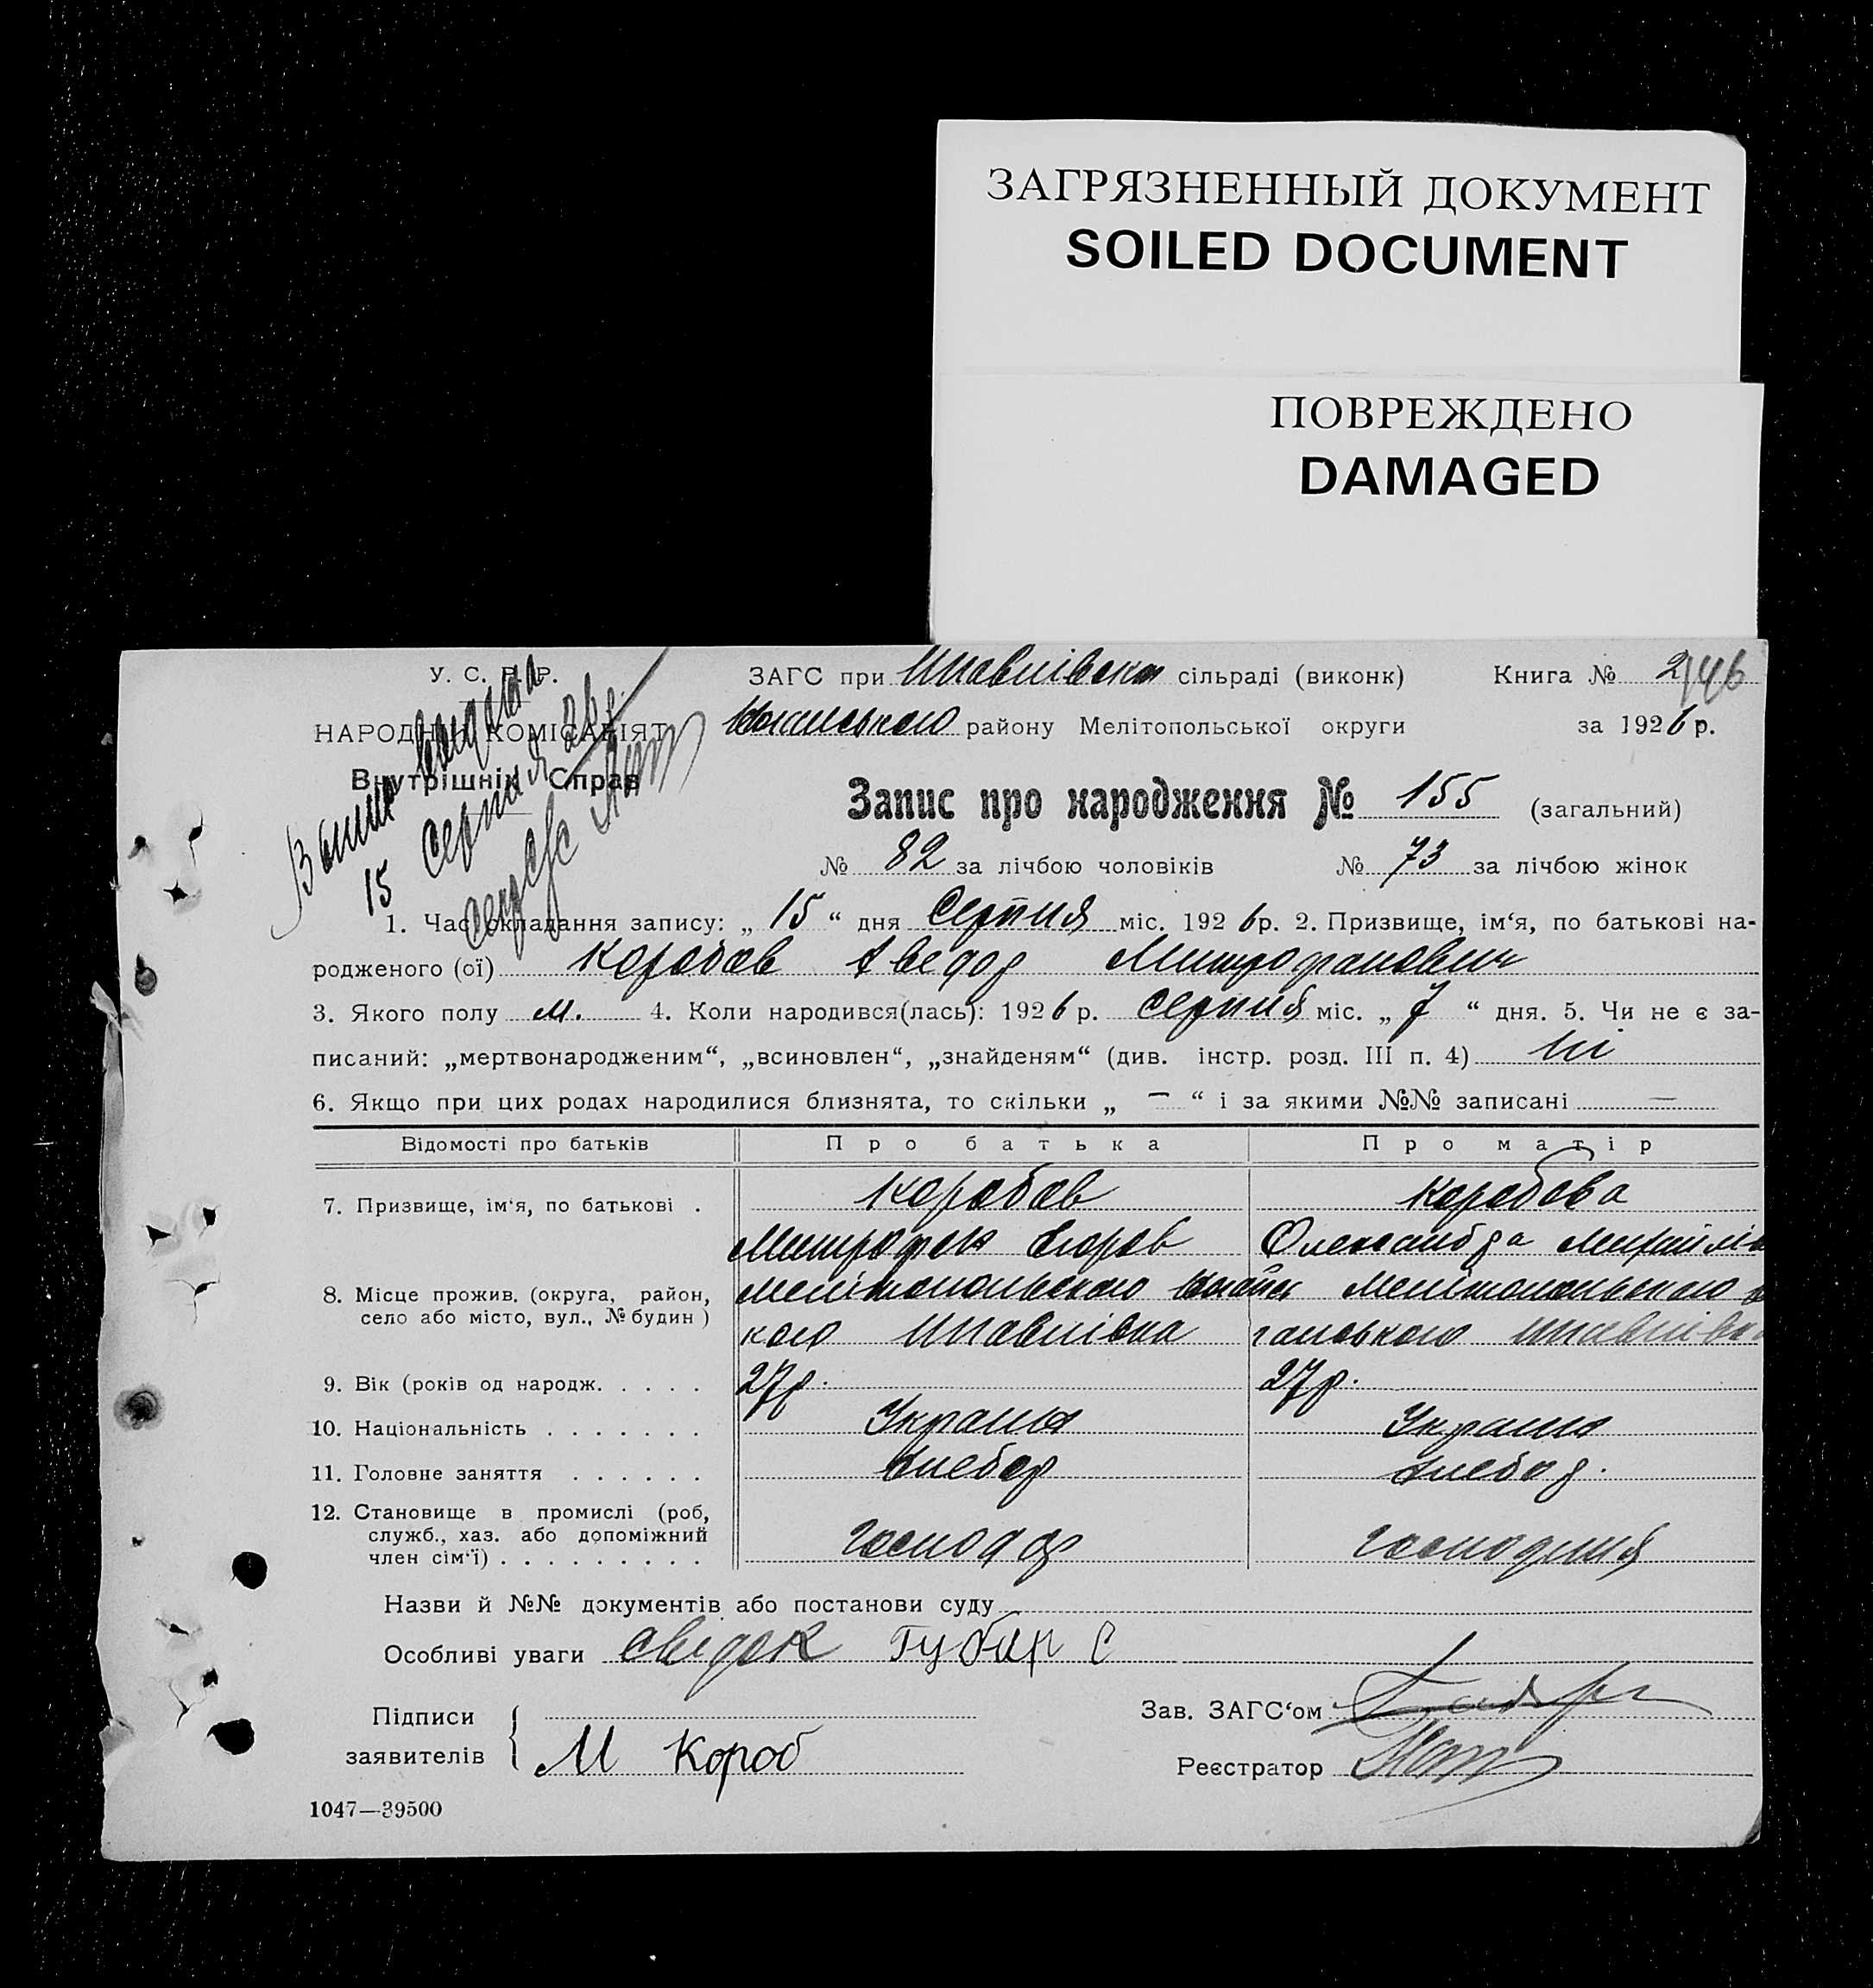 ЗАГРЯЗНЕННЫЙ ДОКУМЕНТ
SOILED DOCUMENT
ПОВРЕЖДЕНО
DAMAGED
У. С. Р. Р.
НАРОДНІЙ КОМІСАРІЯТ
Внутрішніх Справ
15 Серпня 26 р.
ЗАГС при сільраді (виконк) Книга № 2
146
району Мелітопольської округи за 1926 р.
Запис про народження № 155 (загальний)
№ 82 за лічбою чоловіків № 73 за лічбою жінок
1. Час складання запису: „ 15 “ дня Серпня міс. 1926 р. 2. Призвище, ім‘я, по батькові на-
родженого (ої) Коробов Митрофанович
3. Якого полу м. 4. Коли народився(лась): 1926 р. Серпня міс. „ 7 “ дня. 5. Чи не є за-
писаний: „мертвонародженим“, „всиновлен“, „знайденям“ (див. інстр. розд. III п. 4) Ні
6. Якщо при цих родах народилися близнята, то скільки „ — “ і за якими №№ записані —
Відомості про батьків Про батька Про матір
7. Призвище, ім‘я, по батькові . Коробов Коробова
Егоров Олександра
8. Місце прожив. (округа, район, Мелітопольского Мелітопольского
село або місто, вул., № будин )
9. Вік (років од народж. . . . . 27 р. 27 р.
10. Національність . . . . . . . Україн Україн
11. Головне заняття . . . . . . Хлебор Хлебор.
12. Становище в промислі (роб,
служб., хаз. або допоміжний Господар Господиня
член сім‘ї) . . . . . . . . .
Назви й №№ документів або постанови суду
Особливі уваги свідок Губар С
Підписи Зав. ЗАГС‘ом
заявителів М Короб Реєстратор
1047—39500